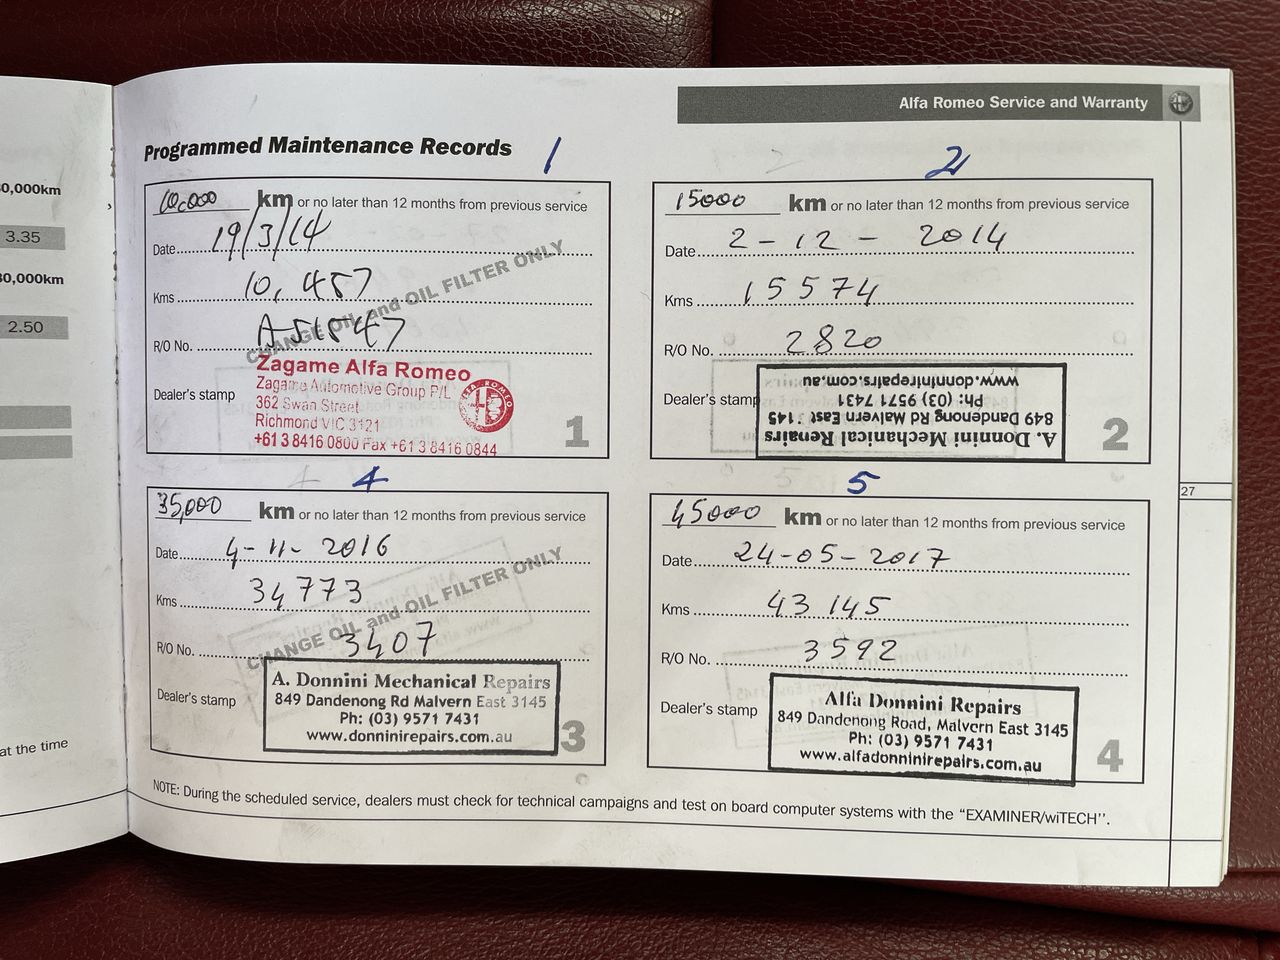 0,000km
3.35
0,000km
2.50
at the time
Alfa Romeo Service and Warranty
Programmed Maintenance Records
1
10,000 km or no later than 12 months from previous service
Date 19/3/14
Kms 10,457
R/O No. A51547
CHANGE OIL and OIL FILTER ONLY
Dealer's stamp
Zagame Alfa Romeo
Zagame Automotive Group P/L
362 Swan Street
Richmond VIC 3121
+61 3 8416 0800 Fax +61 3 8416 0844
ALFA ROMEO
1
2
15000 km or no later than 12 months from previous service
Date 2-12-2014
Kms 15574
R/O No. 2820
Dealer's stamp
A. Donnini Mechanical Repairs
849 Dandenong Rd Malvern East 3145
Ph: (03) 9571 7431
www.donninirepairs.com.au
2
4
35,000 km or no later than 12 months from previous service
Date 4-11-2016
Kms 34773
R/O No. 3407
CHANGE OIL and OIL FILTER ONLY
Dealer's stamp
A. Donnini Mechanical Repairs
849 Dandenong Rd Malvern East 3145
Ph: (03) 9571 7431
www.donninirepairs.com.au
3
5
45000 km or no later than 12 months from previous service
Date 24-05-2017
Kms 43145
R/O No. 3592
Dealer's stamp
Alfa Donnini Repairs
849 Dandenong Road, Malvern East 3145
Ph: (03) 9571 7431
www.alfadonninirepairs.com.au
4
27
NOTE: During the scheduled service, dealers must check for technical campaigns and test on board computer systems with the "EXAMINER/wiTECH".